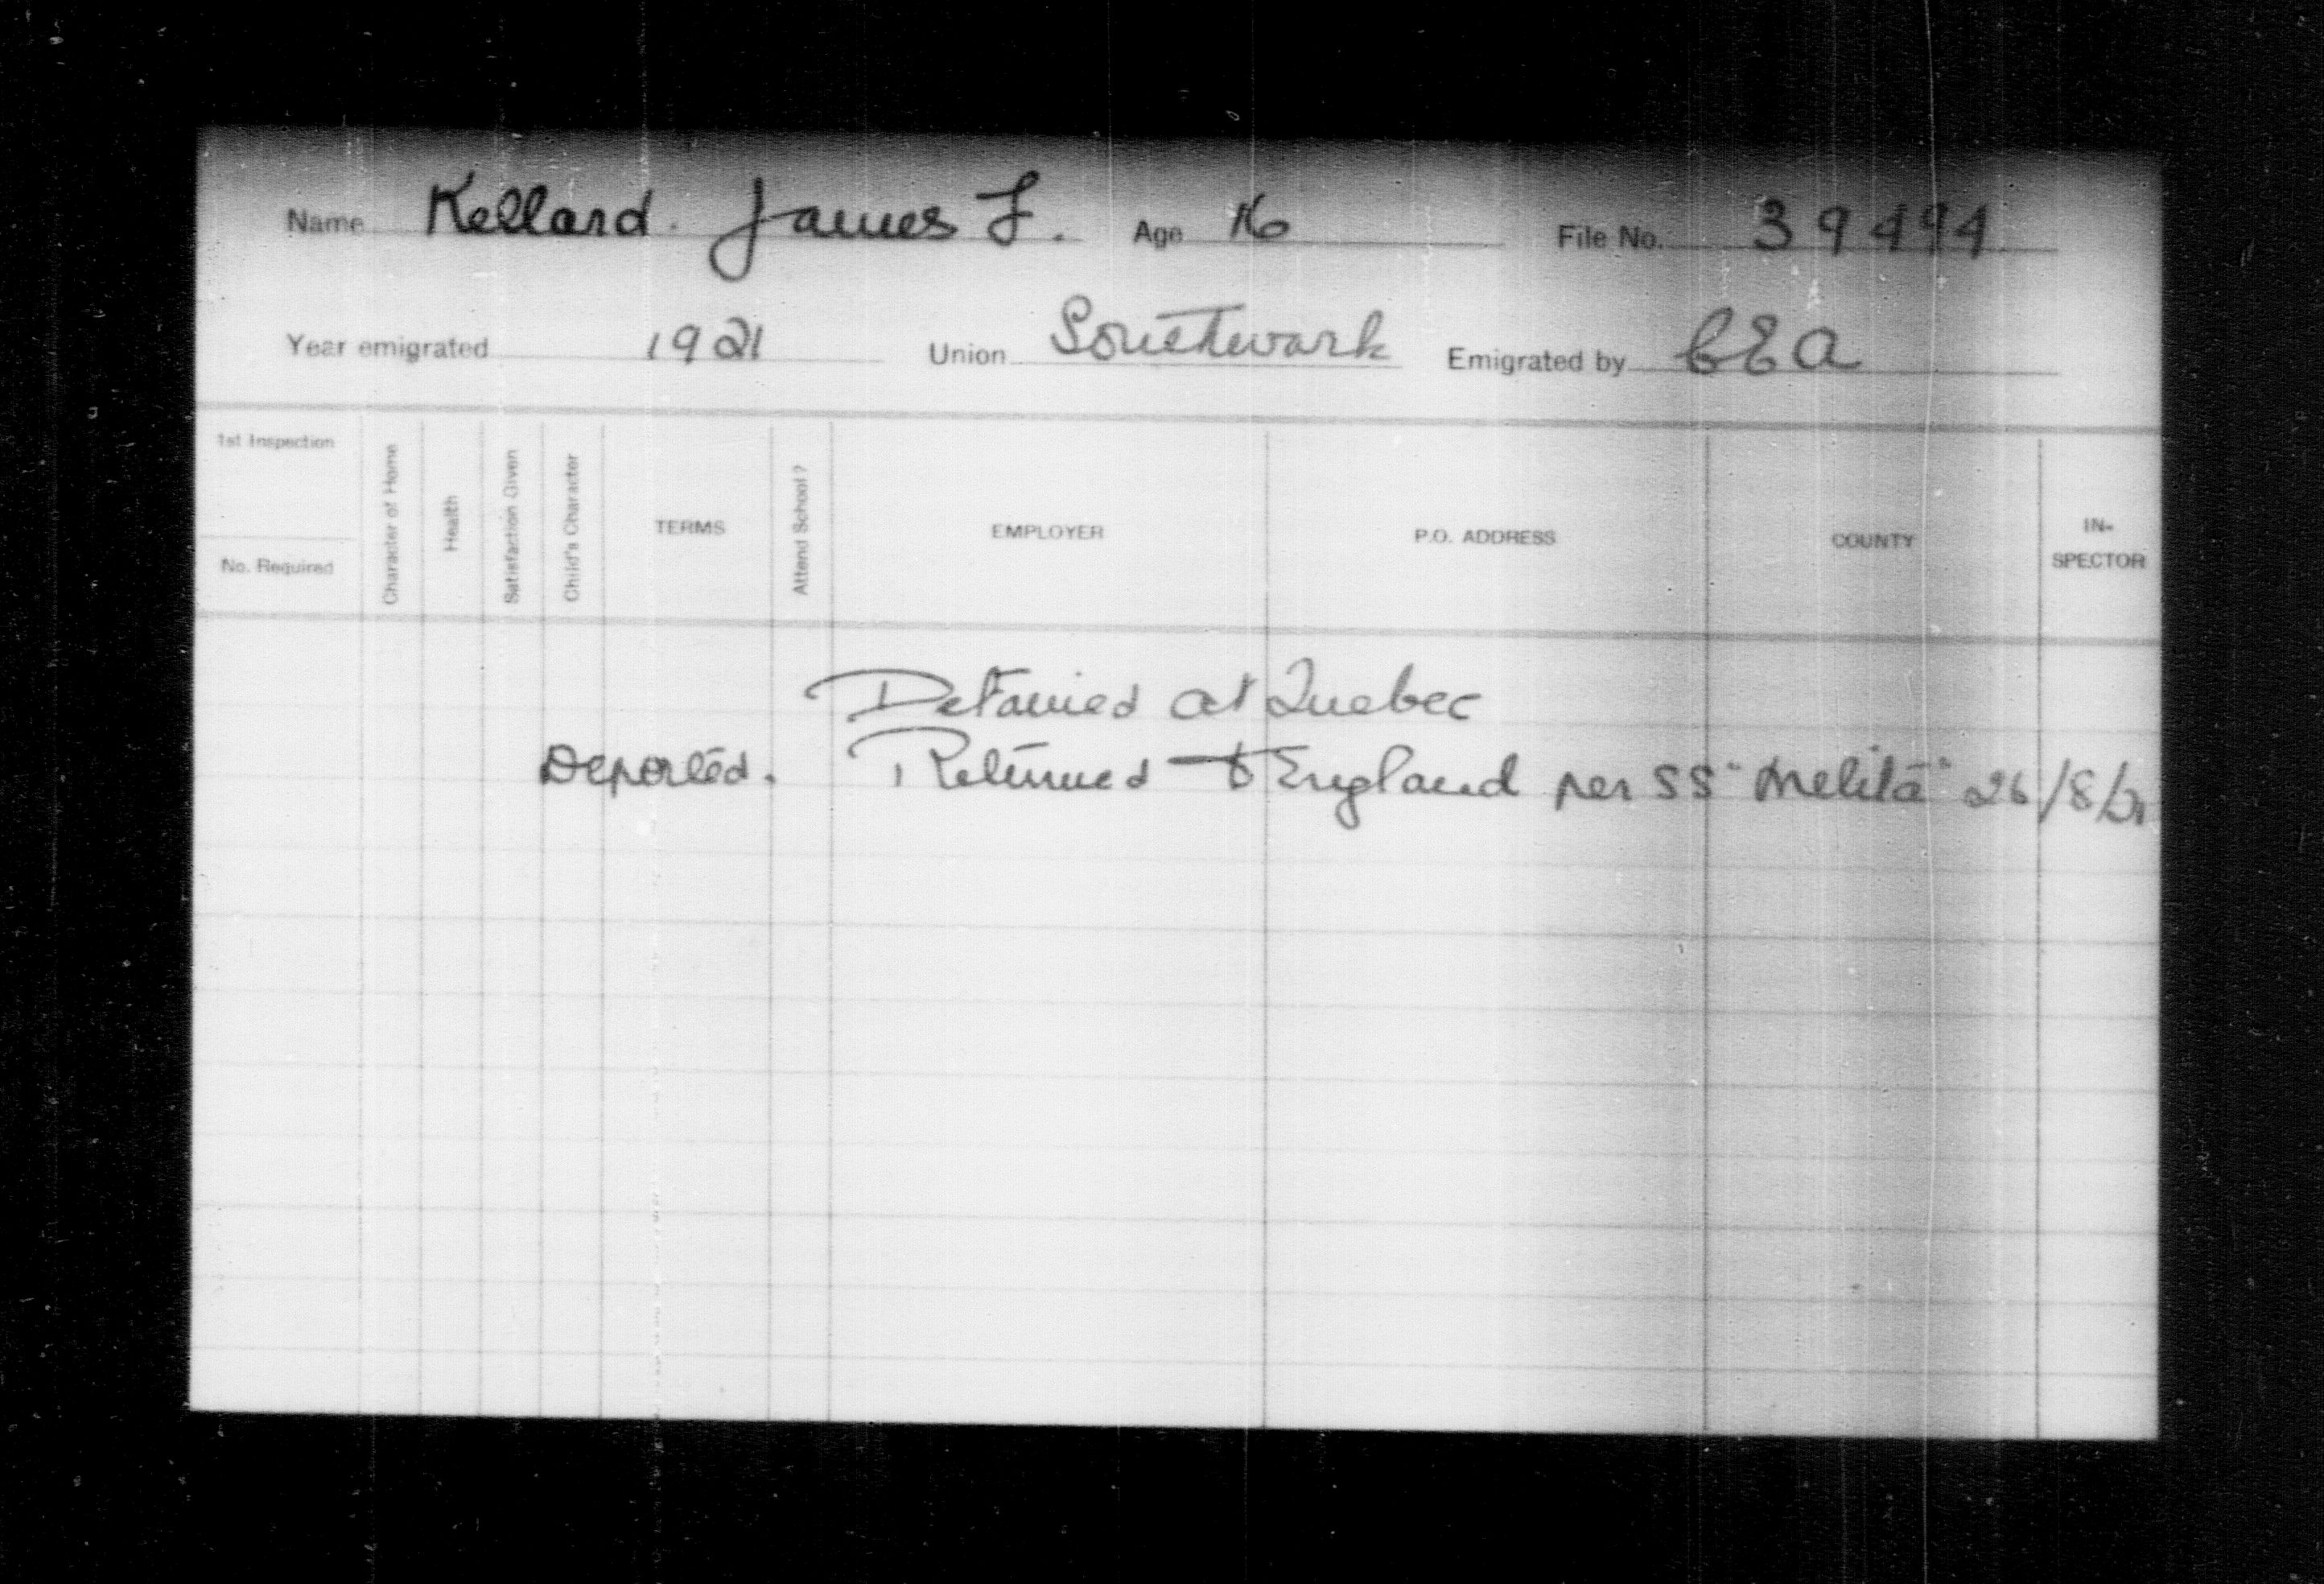 Name Kellard. James F. Age 16 File No. 39494
Year emigrated 1921 Union Southwark Emigrated by CEA
1st Inspection
No. Required
Character of Home
Health
Satisfaction Given
Child's Character
TERMS
Attend School?
EMPLOYER
P.O. ADDRESS
COUNTY
IN-
SPECTOR
Detained at Quebec
Deported. Returned to England per SS "Melita" 26/8/21